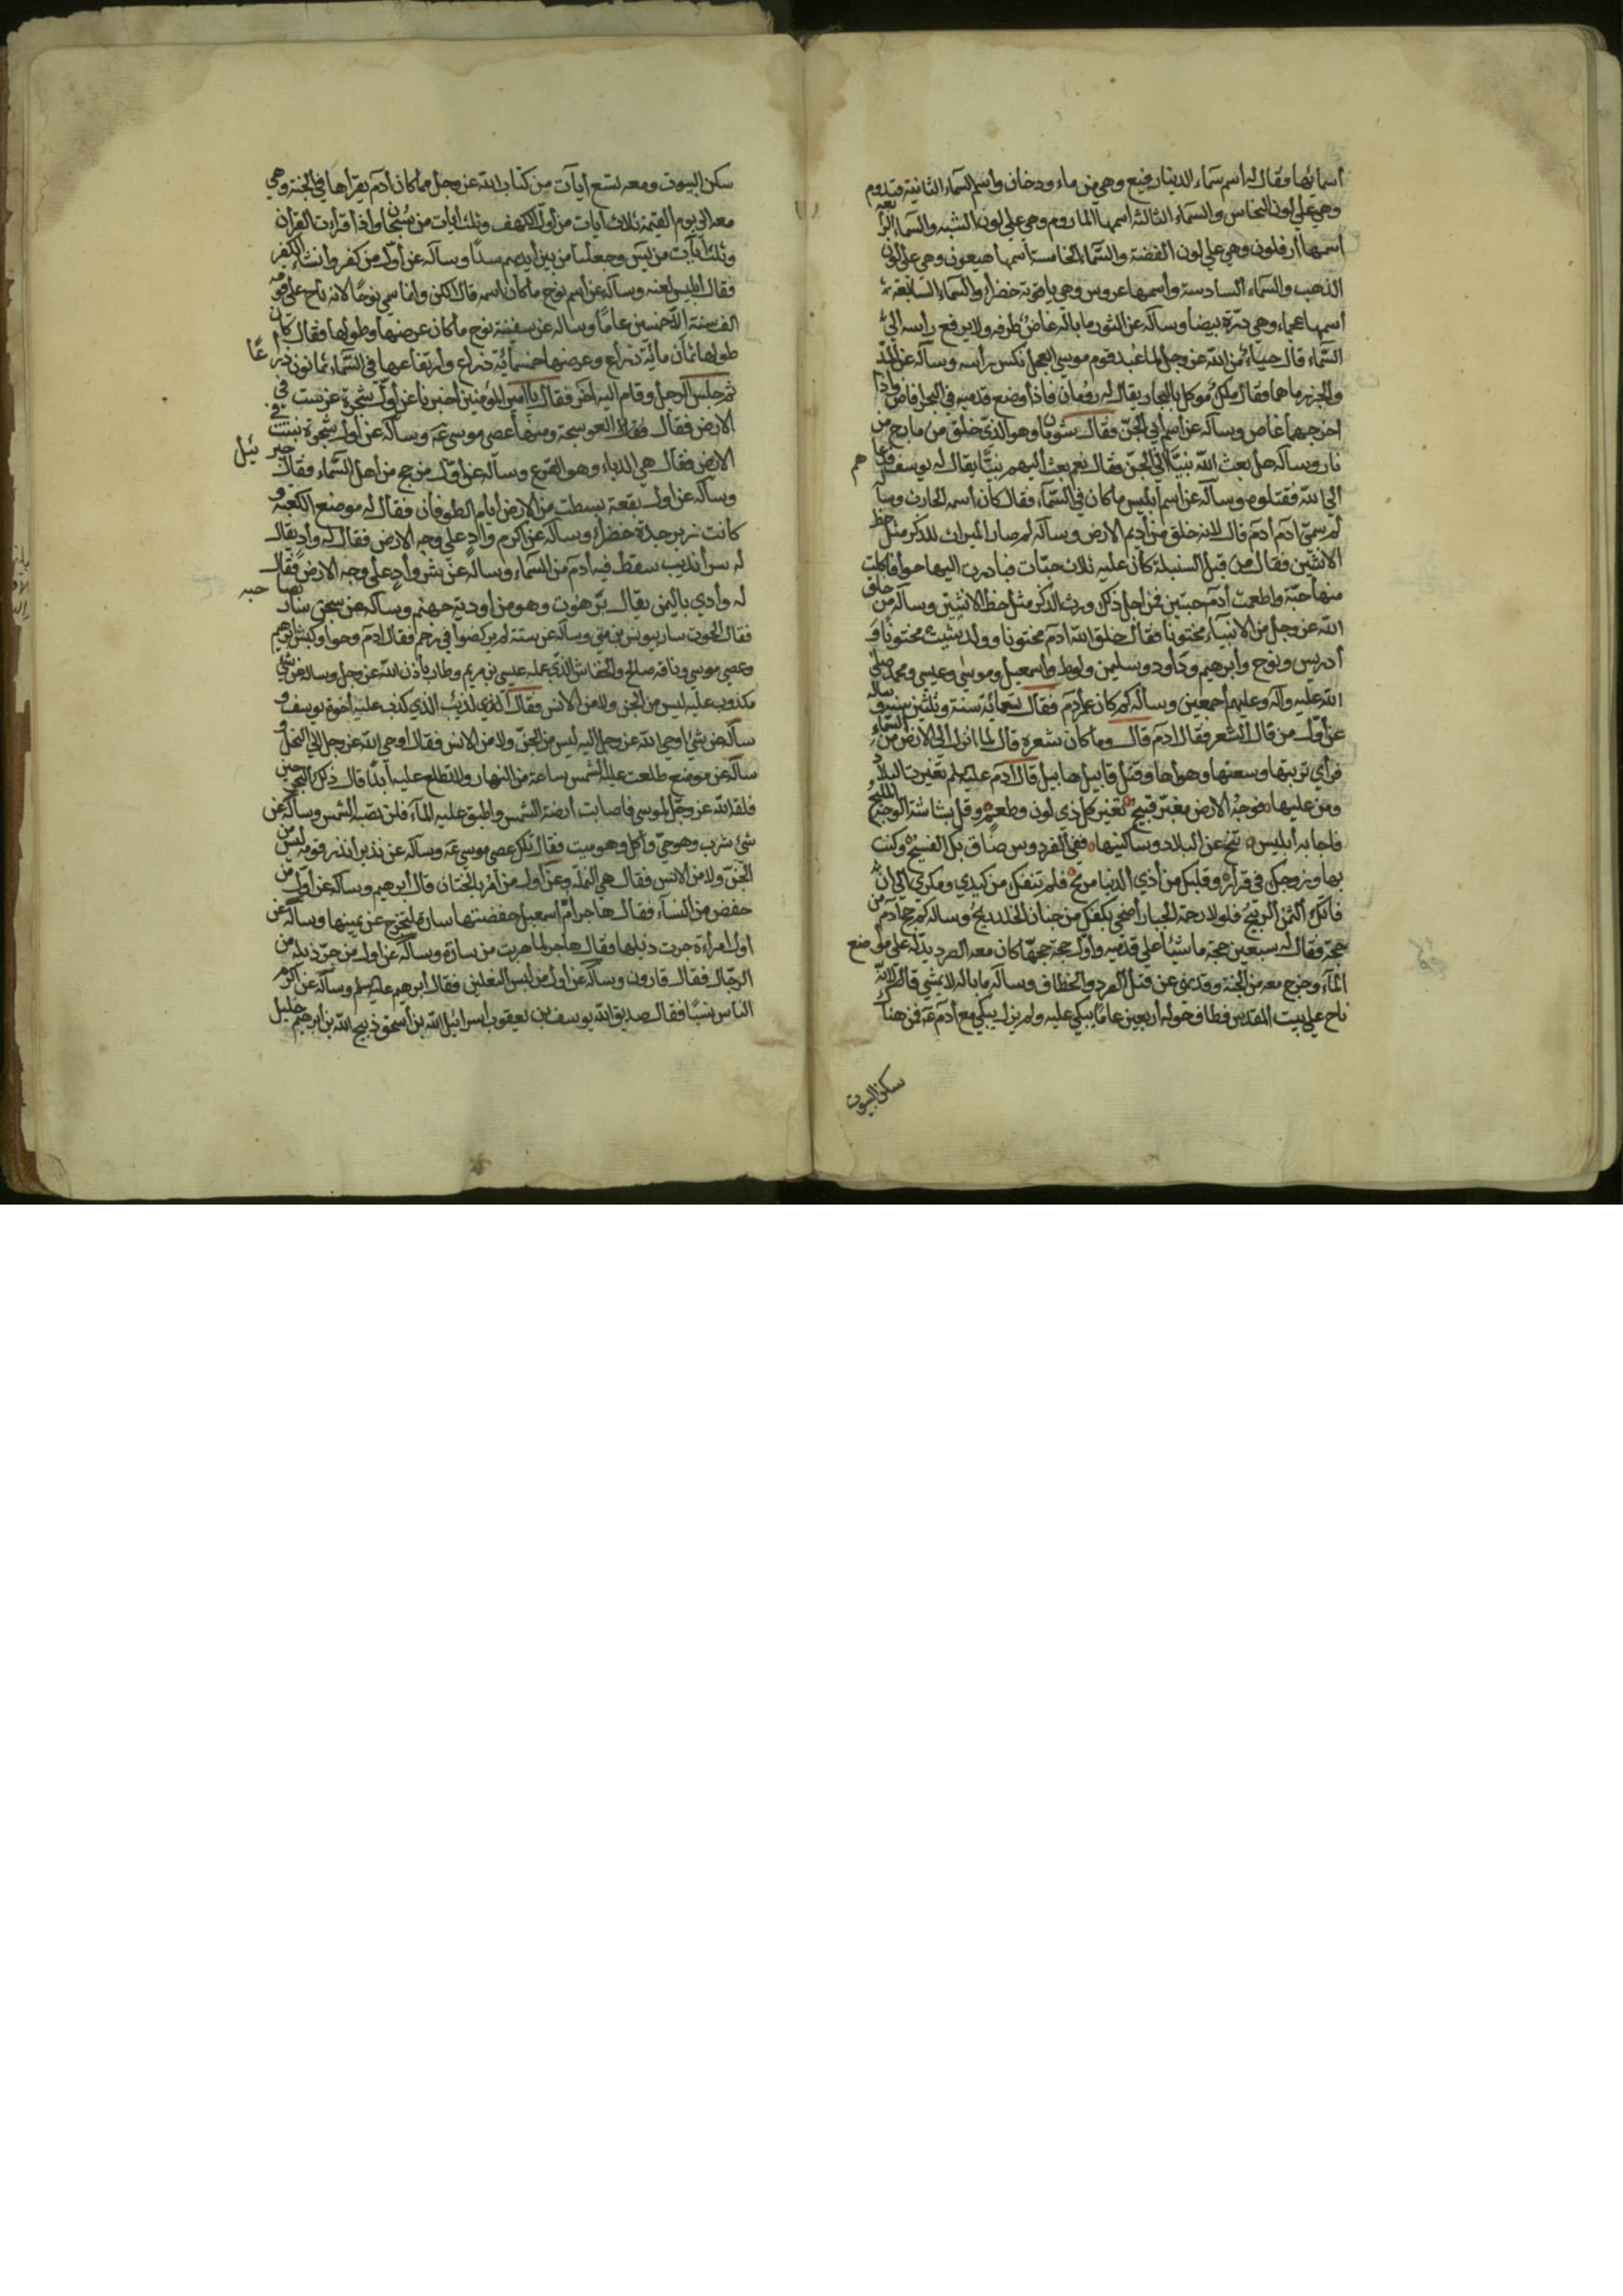 أسمائها فقال له اسم سماء الدنيا رفيع وهي من ماء ودخان واسم السماء الثانية قيدوم
وهي علي لون النحاس والسماء الثالثة اسمها الماروم وهي علي لون الشبه والسماء الرابعة
اسمها أرفلون وهي علي لون الفضة والسماء الخامسة أسمها هيعون وهي علي لون
الذهب والسماء السادسة وأسمها عروس وهي ياقوتة خضراء والسماء السابعة
أسمها عجماء وهي درّة بيضا وسأله عن الثور ما باله غاض طرفه ولا يرفع راسه الي
السّماء قال حياء من الله عز وجل لما عبد قوم موسي العجل نكس راسه وسأله عن المدّ
والجزر ما هما فقال ملك موكل بالبحار يقال له رومان فاذا وضع قدميه في البحر فاض واذا
اخرجهما غاص وسأله عن اسم أبي الجنّ فقال شومان وهو الذي خلق من مارج من
نار وسأله هل بعث الله نبيّا الي الجنّ فقال نعم بعث أليهم نبيّا يقال له يوسف فدعاهم
الي الله فقتلوه وسأله عن اسم أبليس ما كان في السّماء فقال كان أسمه الحارث وسأله
لم سمّي ادم أدم قال لانه خلق من أديم الارض وسأله لم صار الميراث للذكر مثل حظ
الانثيين فقال من قبل السنبلة كان عليه ثلاث حبّات فبادرت اليها حوا فاكلت
منها حبّة واطعمت أدم حبتين فمن اجل ذلك ورث الذكر مثل حظ الانثيين وسأله من خلق
الله عز وجل من الانبياء مختونا فقال خلق الله ادم مختونا وولد شيث مختونا و
أدريس ونوح وأبرهيم وداود وسليمن ولوط واسمعيل وموسي وعيسي ومحمد صلي
الله عليه وآله وعليهم أجمعين وسأله كم كان عمر آدم فقال تسعمائة سنة وثلثين سنة وساله
عن أوّل من قال الشعر فقال ادم قال وما كان شعره قال لما انزل الي الارض من السماء
فرأي تربتها وسعتها وهواها وقتل قابيل هابيل قال أدم عليه لم تغيرت البلاد
ومن عليها فوجه الارض مغبّر قبيح تغير كل ذي لون وطعم وقل بشاشة الوجه المليح
فاجابه أبليس تنح عن البلاد وساكنيها ففي الفردوس ضاق بك الفسيح وكنت
بها وزوجك في قرار وقلبك من أذي الدنيا مريح فلم تنفك من كيدي ومكري الي ان
فاتك الثمن الربيح فلولا رحمة الجبار أضحي بكفك من جنان الخلد ريح وساله كم حج أدم من
حجّة فقال له سبعين حجّة ماشيا علي قدميه وأوّل حجة حجّها كان معه الصرد يدلّه علي موضع
المآء وخرج معه من الجنة وقد نهي عن قتل الصرد والخطاف وسأله ما باله لا يمشي قال لانه
ناح علي بيت المقدس فطاف حوله أربعين عامًا يبكي عليه ولم يزل يبكي مع أدم عه فمن هناك
سكن البيوت
سكن البيوت ومعه تسع أيآت من كتاب الله عز وجل مما كان ادم يقراها في الجنة وهي
معه الي يوم القيمة ثلاث ايات من أول الكهف وثلث ايات من سبحان واذا قرأت القرآن
وثلث أيآت من يس وجعلنا من بين أيديهم سدّا وسأله عن أوّل من كفر وانشاء الكفر
فقال ابليس لعنه وسأله عن اسم نوح ما كان اسمه قال السكن وانما سمي نوحًا لانه ناح علي قومه
الف سنة الّا خمسين عامًا وساله عن سفينة نوح ما كان عرضها وطولها فقال كان
طولها ثمان مائة ذراع وعرضها خمسمائة ذراع وارتفاعها في السّماء ثمانون ذراعًا
ثم جلس الرجل وقام اليه اخر فقال يا امير المؤمنين أخبرنا عن أوّل شجرة غرست في
الارض فقال العوسجة ومنها عصي موسي عه وسأله عن أول شجرة نبتت في
الارض فقال هي الدباء وهو القرع وسأله عن اوّل من حج من أهل السّماء فقال جبرئيل
وسأله عن اول بقعة بسطت من الارض أيام الطوفان فقال له موضع الكعبة و
كانت زبرجدة خضراء وسأله عن اكرم واد علي وجه الارض فقال له واد يقال
له سرأنديب سقط فيه أدم من السماء وسأله عن شر واد علي وجه الارض فقال
له وأدي باليمن يقال برّهوت وهو من اودية جهنم وسأله عن سجن سار بصاحبه
فقال الحوت سار بيونس بن متي وسأله عن ستة لم يركضوا في رحم فقال ادم وحوا وكبش أبرهيم
وعصي موسي وناقة صالح والخفاش الذي عمله عيسي بن مريم وطار بأذن الله عز وجل وساله عن شئ
مكذوب عليه ليس من الجن ولا من الانس فقال الذئب الذي كذب عليه أخوة يوسف و
سأله عن شئ اوحي الله عز وجل اليه ليس من الجنّ ولا من الانس فقال أوحي الله عز وجل الي النحل و
سأله عن موضع طلعت عليه الشمس ساعة من النهار ولا تطلع عليه أبدًا قال ذلك البحر حين
فلقه الله عز وجل لموسي فاصابت أرضه الشمس واطبق عليه المآء فلن تصبه الشمس وسأله عن
شئ شرب وهو حيّ واكل وهو ميت فقال تلك عصي موسي عه وسأله عن نذير أنذر قومه ليس من
الجنّ ولا من الانس فقال هي النملة وعن أول من أمر بالختان قال أبرهيم وسأله عن أول من
خفض من النسآء فقال هاجر أمّ اسمعيل خفضتها سارة لتخرج عن يمينها وسأله عن
اول امراءة جرت ذيلها فقال هاجر لما هربت من سارة وسأله عن اول من جرّ ذيله من
الرجال فقال قارون وسأله عن أول من لبس النعلين فقال أبرهيم عليه سلم وسأله عن اكرم
الناس نسبًا فقال صديق الله يوسف بن يعقوب اسرائيل الله بن أسحق ذبيح الله بن أبرهيم خليل